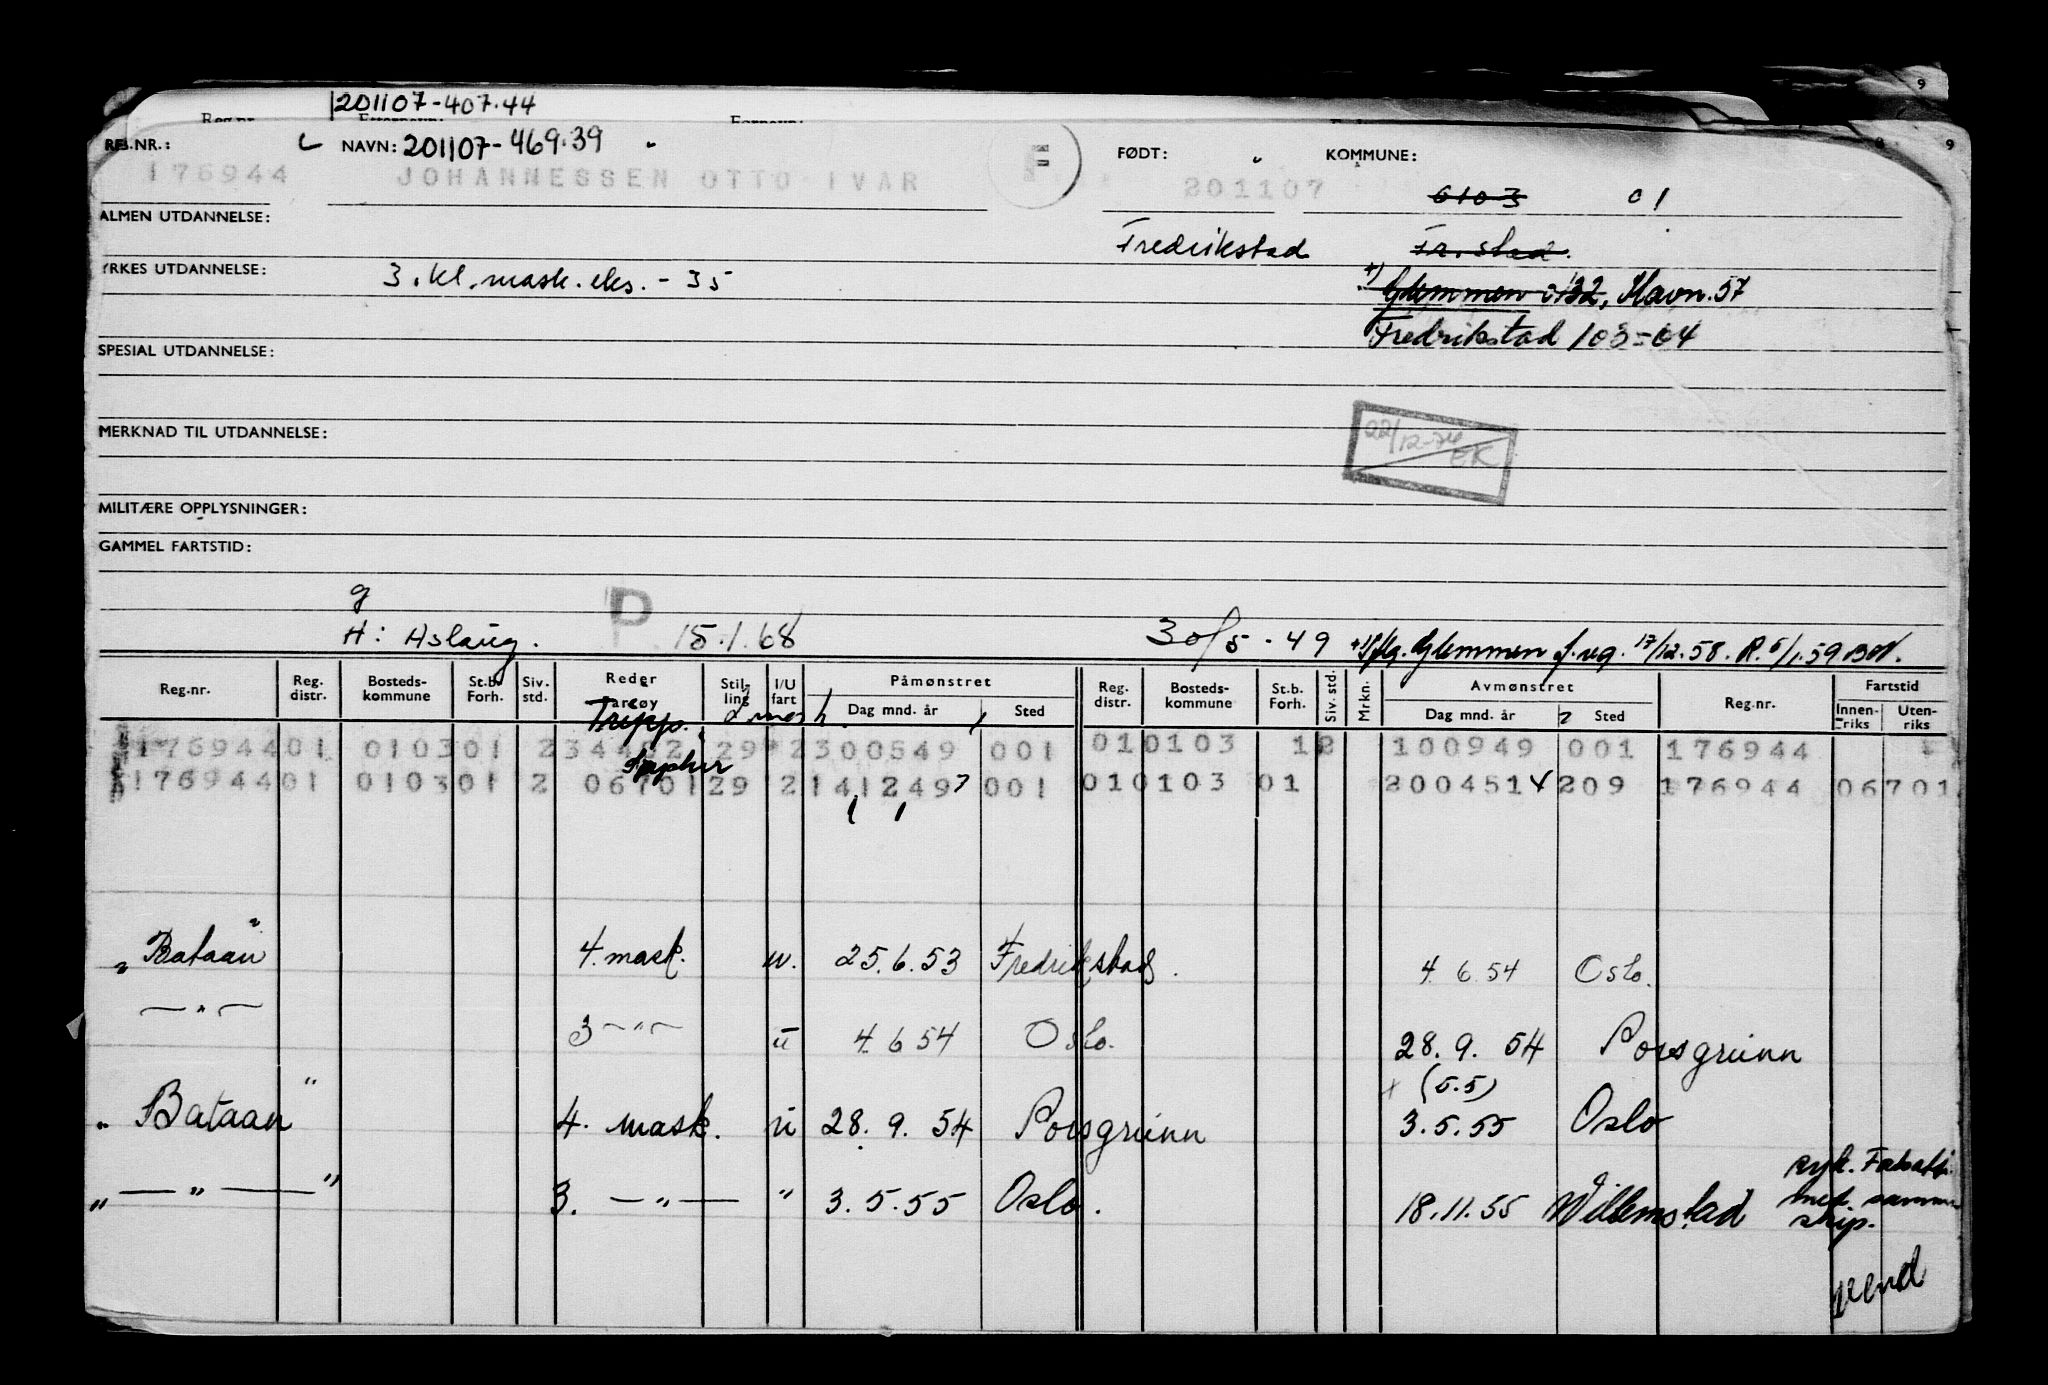 201107-407.44
REG.NR.: NAVN: 201107-469.39 FØDT: KOMMUNE:
176944 JOHANNESSEN OTTO IVAR F 201107 0103 01
ALMEN UTDANNELSE:
Fredrikstad Fr.stad.
YRKES UTDANNELSE: 3.kl.mask.eks.-35
+) Glemmen 0132, Havn.57
Fredrikstad 103-04
SPESIAL UTDANNELSE:
MERKNAD TIL UTDANNELSE:
22/12-76 EK
MILITÆRE OPPLYSNINGER:
GAMMEL FARTSTID:
g
H: Aslaug. P 15.1.68 30/5-49 +) flg. Glemmen f.reg. 17/12.58. R. 6/1.59
Reg.nr. Reg. distr. Bosteds-kommune St.b. Forh. Siv. std. Reder Fartøy Stil-ling I/U fart Påmønstret Reg. distr. Bosteds-kommune St.b. Forh. Siv. std. Mrkn. Avmønstret Reg.nr. Fartstid
Dag mnd. år Sted Dag mnd. år Sted Innen-riks Uten-riks
Tripp.
17694401 010301 234 29 2300549 001 010103 12 100949 001 176944
Saphir
17694401 010301 2 0670129 21412497 001 010103 01 2004514 209 176944 06701
"Bataan" 4.mask. u. 25.6.53 Fredrikstad. 4.6.54 Oslo.
—"— 3 —"— u 4.6 54 Oslo. 28.9.54 Porsgrunn
x (5.5)
"Bataan" 4. mask. u 28.9.54 Porsgrunn 3.5.55 Oslo
"—"—" 3. —"— " 3.5.55 Oslo. 18.11.55 Willemstad syk.
med samme skip.
vend